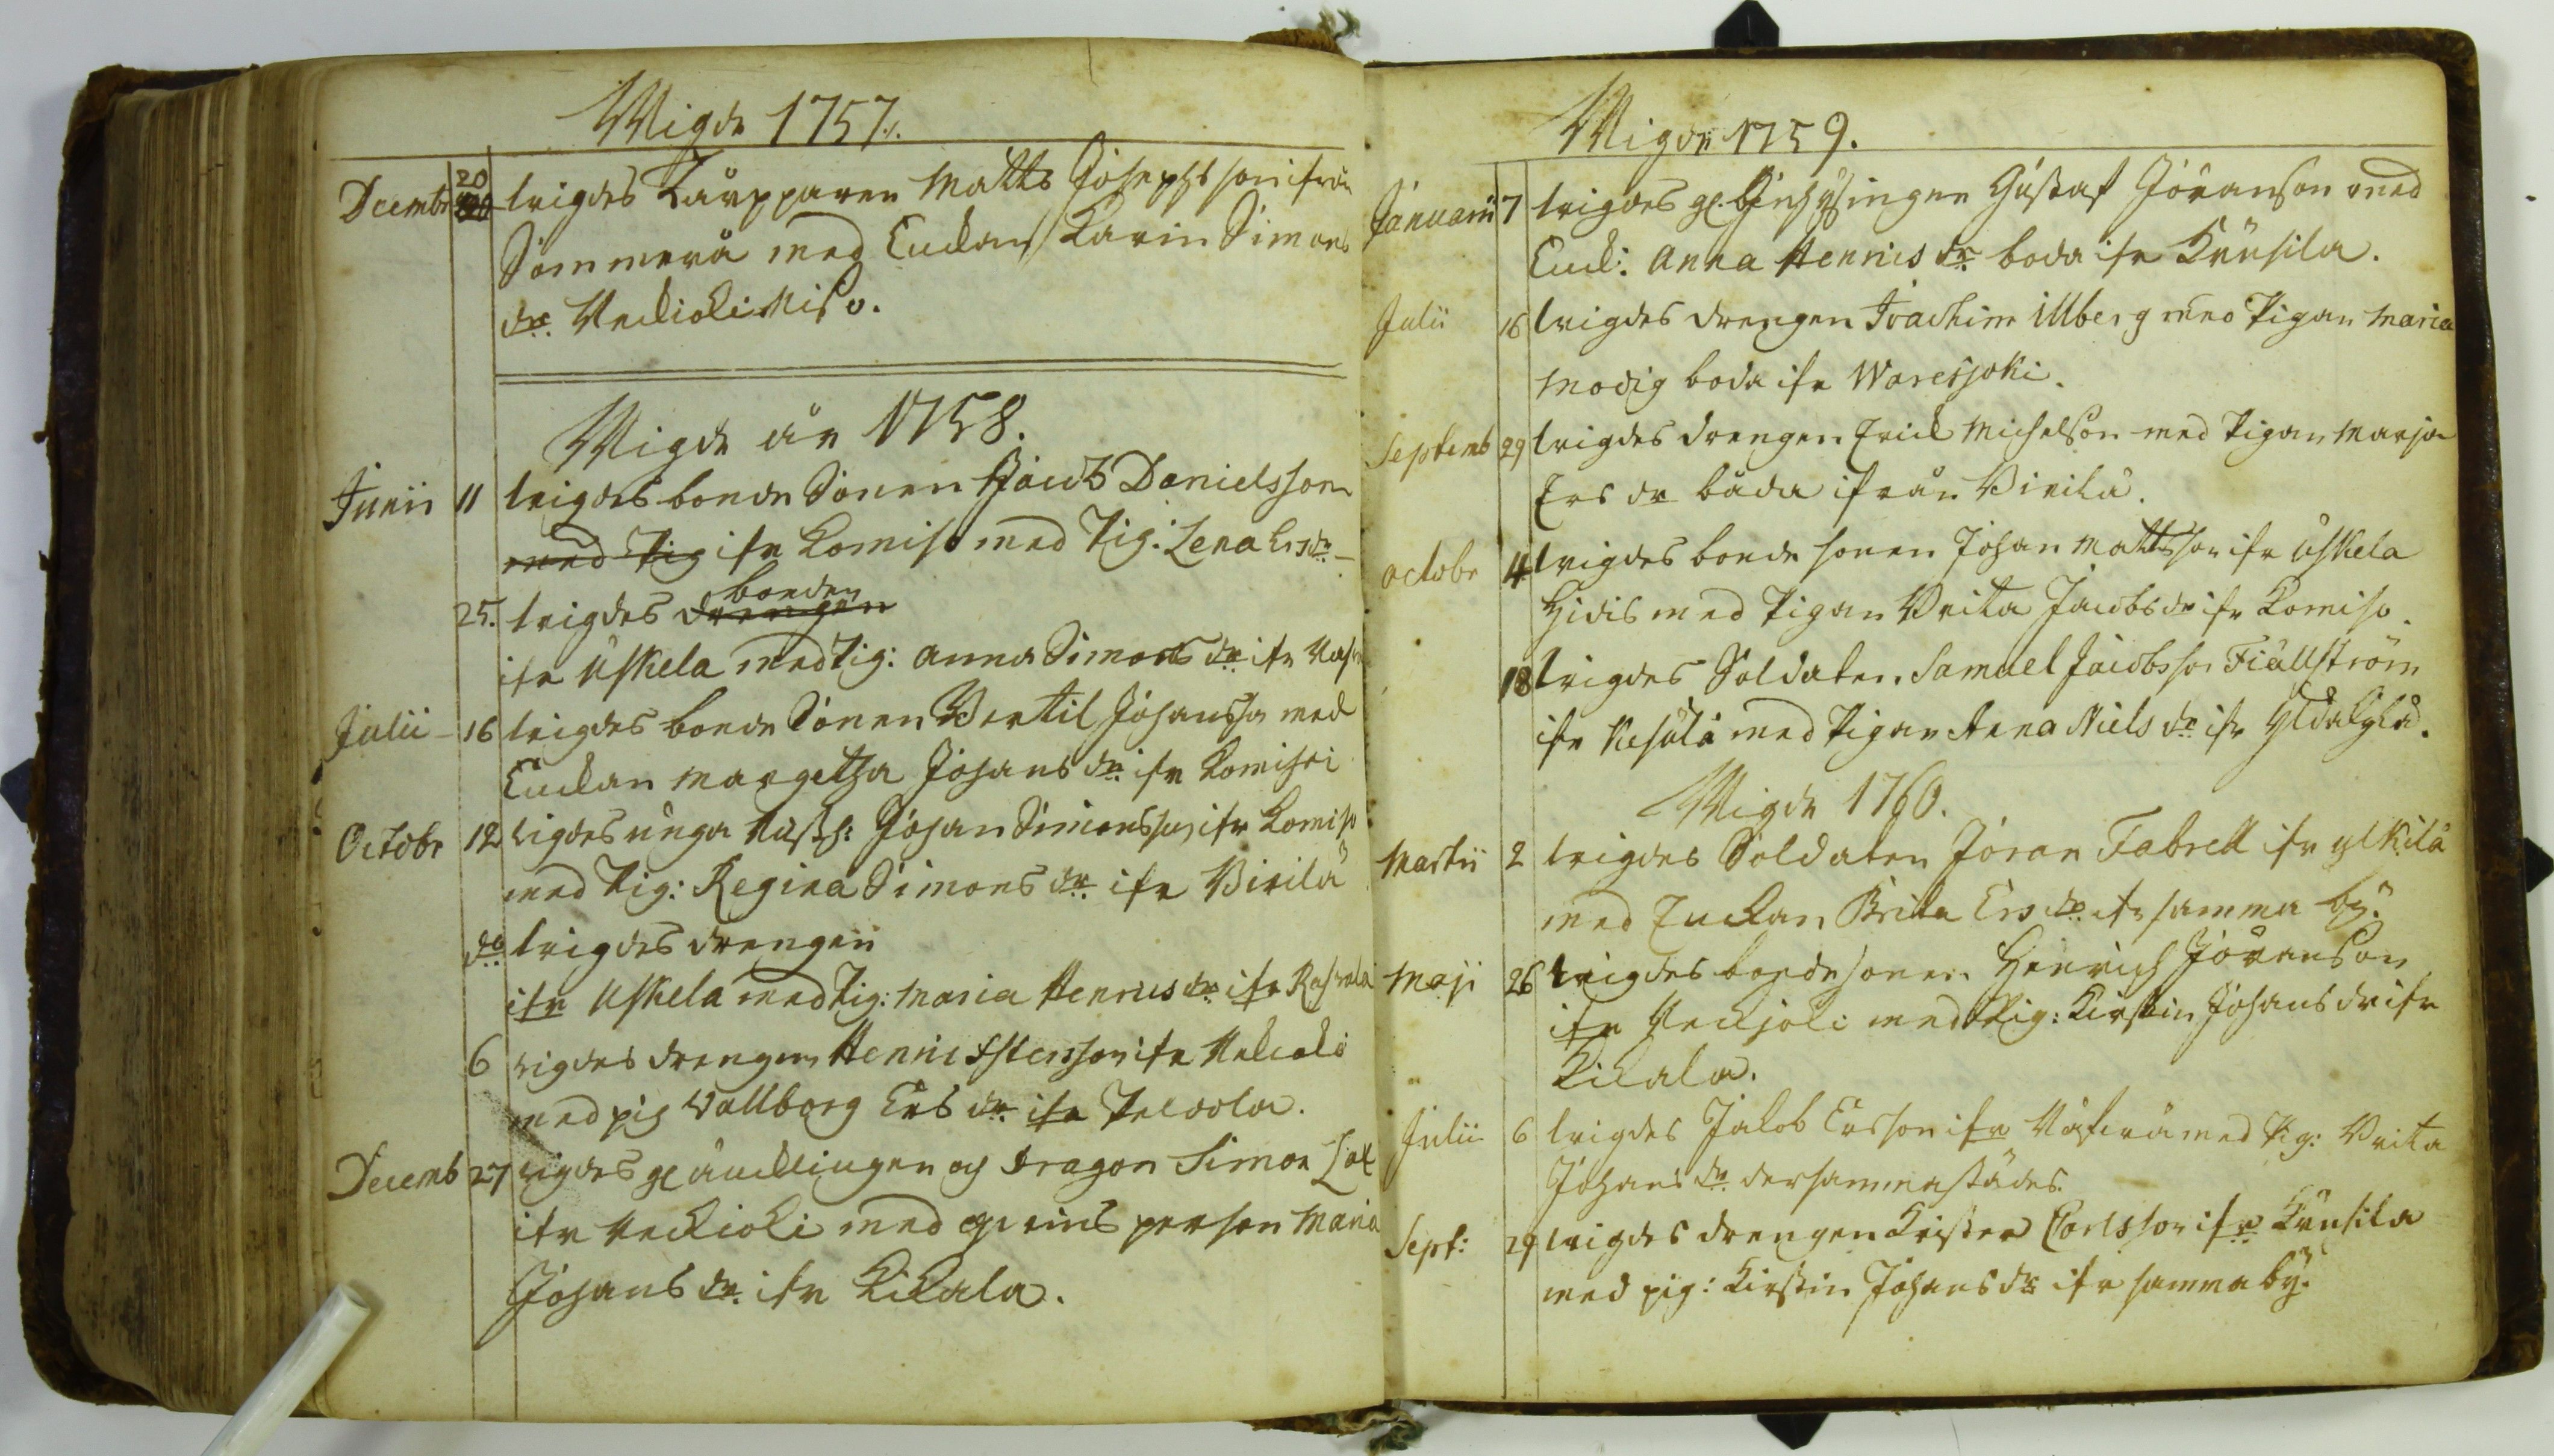 Wigde 1757.
Decembr 20 wigdes Torpparen Matts Josephsson ifrån
Sommerå med Enckan Karin Simons
dr. Veckioki Miso.
Wigde år 1758.
Junii 11 wigdes bonde Sonen Jacob Danielsson
med Pig ifr Komiso med Pig: Lena Ersdr
25. wigdes drengen bonden
ifr Uskela med Pig: Anna Simons dr ifr
Julii 16 wigdes bonde Sonen Bertil Johansson med
Enckan Margetha Johans dr ifr Komisoi
Octobr 12 wigdes unga Johan Simonsson ifr Komiso
med Pig: Regina Simons dr ifr Virilä
do wigdes drengen
ifr Uskela med Pig: Maria Hennis dr ifr
6 wigdes drengen Henric ifr
med pig Wallborg Ers dr ifr
Decemb 27 wigdes gl änklingen och Dragon Simon
ifr Veckioki med person Maria
Johans dr ifr Kickala.
Wigde 1759.
Januarii 7 wigdes gl. Inhysingen Gustaf Jöranson med
Enck: Anna Hennis dr boda ifr Krusila.
Julii 16 wigdes drengen Joachim Ulberg med Pigan Maria
Modig boda ifr Waresjoki.
Septemb 29 wigdes drengen Erick Michelson med Pigan Marja
Ers dr båda ifrån Virilä.
octobr 4 wigdes bonde sonen Johan Mattsson ifr Uskela
Hidis med Pigan Brita Jacobsdr ifr Komiso.
18 wigdes Soldaten Samuel Jacobsson Fiällström
ifr med Pigan Anna Niels dr ifr
Wigde 1760.
Martii 2 wigdes Soldaten Jöran Fabrell ifr ylkilä
med Enckan Brita Ers dr ifr samma by.
Maji 26 wigdes bondesonen Henrich Jöranson
ifr Veckjoki med Pig: Kirstin Johansdr ifr
Kickala.
Julii 6 wigdes Jakob Ersson ifr med Pig: Brita
Johans dr dersammastädes.
Sept: 29 wigdes drengen Krister Carlsson ifr Krusila
med pig: Kirstin Johansdr ifr samma by.